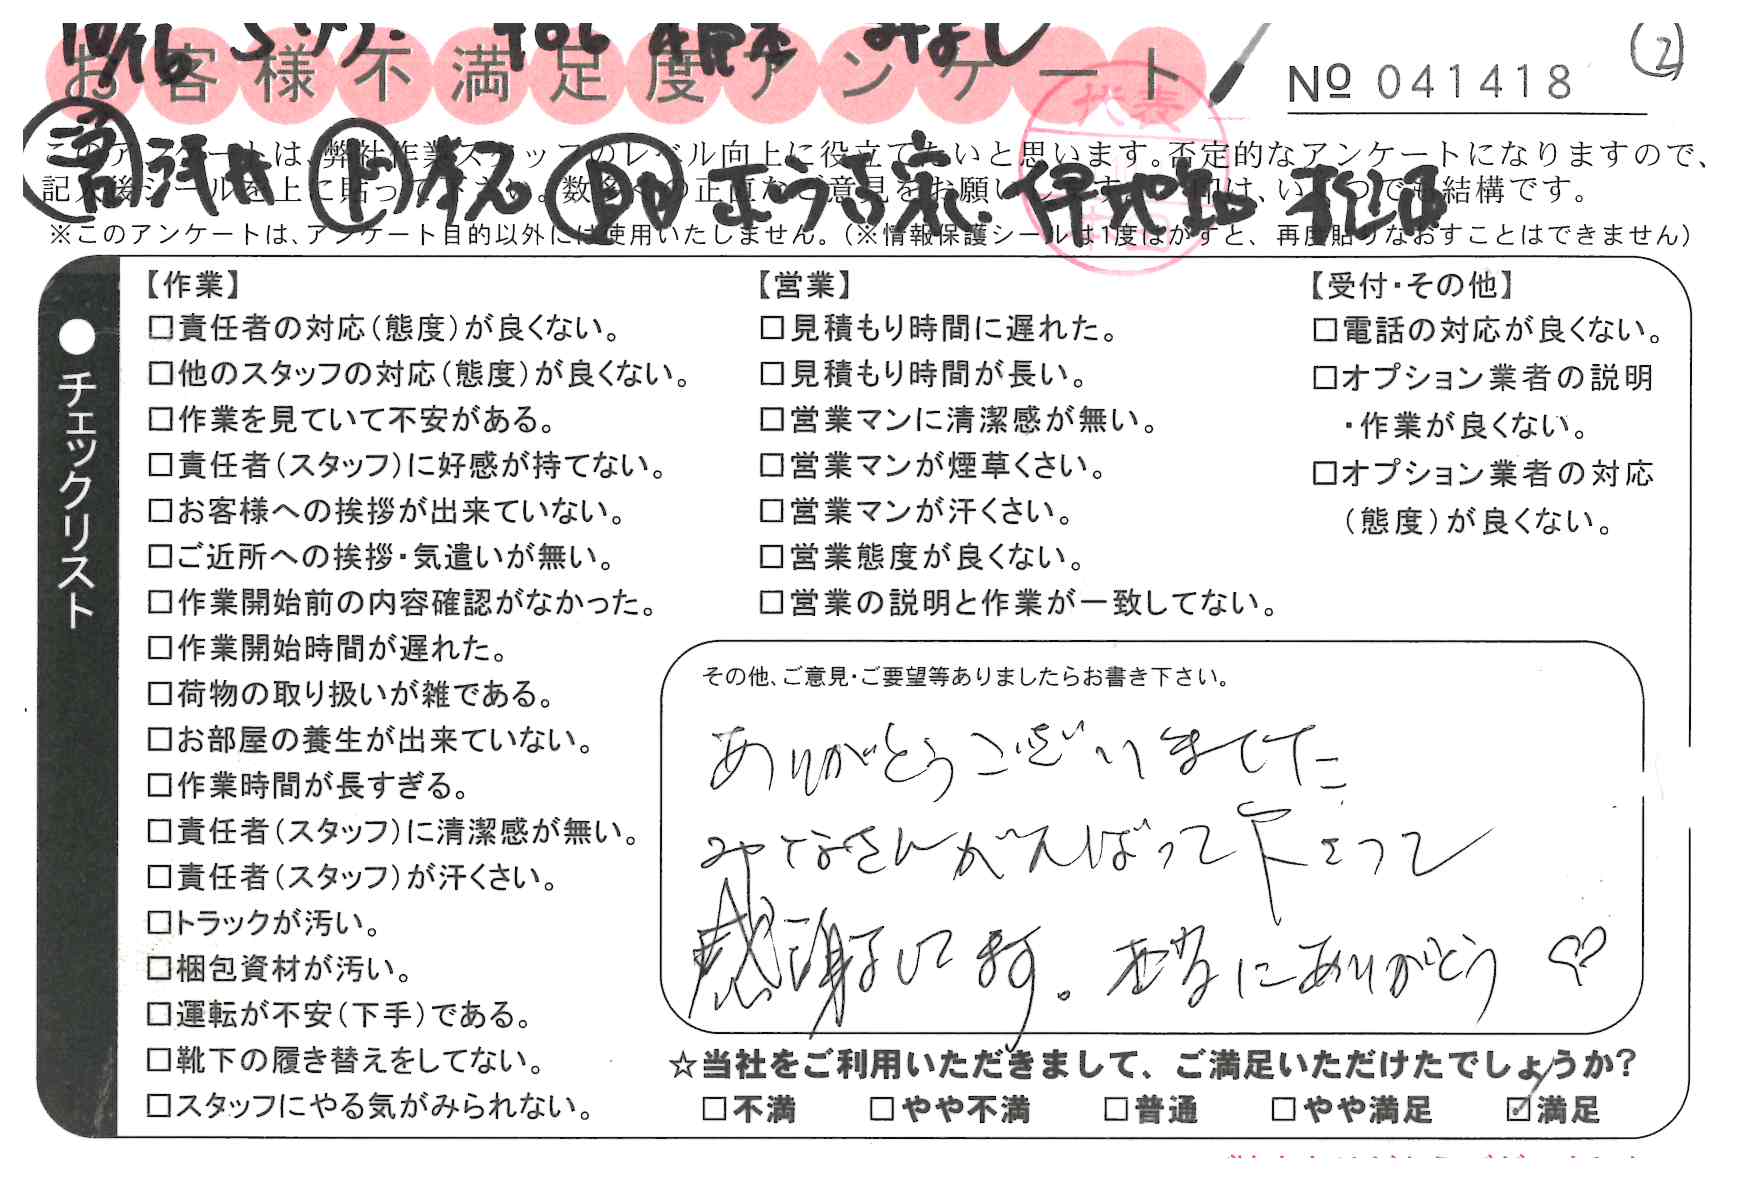 お客様不満足度アンケート
No 041418
2
このアンケートは、弊社作業スタッフのレベル向上に役立てたいと思います。否定的なアンケートになりますので、
記入後シールを上に貼って下さい。数多くの正直なご意見をお願い は、いくつでも結構です。
※このアンケートは、アンケート目的以外には使用いたしません。（※情報保護シールは1度はがすと、再度貼りなおすことはできません）
代表
●チェックリスト
【作業】
□責任者の対応（態度）が良くない。
□他のスタッフの対応（態度）が良くない。
□作業を見ていて不安がある。
□責任者（スタッフ）に好感が持てない。
□お客様への挨拶が出来ていない。
□ご近所への挨拶・気遣いが無い。
□作業開始前の内容確認がなかった。
□作業開始時間が遅れた。
□荷物の取り扱いが雑である。
□お部屋の養生が出来ていない。
□作業時間が長すぎる。
□責任者（スタッフ）に清潔感が無い。
□責任者（スタッフ）が汗くさい。
□トラックが汚い。
□梱包資材が汚い。
□運転が不安（下手）である。
□靴下の履き替えをしてない。
□スタッフにやる気がみられない。
【営業】
□見積もり時間に遅れた。
□見積もり時間が長い。
□営業マンに清潔感が無い。
□営業マンが煙草くさい。
□営業マンが汗くさい。
□営業態度が良くない。
□営業の説明と作業が一致してない。
【受付・その他】
□電話の対応が良くない。
□オプション業者の説明
・作業が良くない。
□オプション業者の対応
（態度）が良くない。
その他、ご意見・ご要望等ありましたらお書き下さい。
ありがとうございました
みなさんがんばって下さって
感謝してます。本当にありがとう♡
☆当社をご利用いただきまして、ご満足いただけたでしょうか？
□不満 □やや不満 □普通 □やや満足 ☑満足